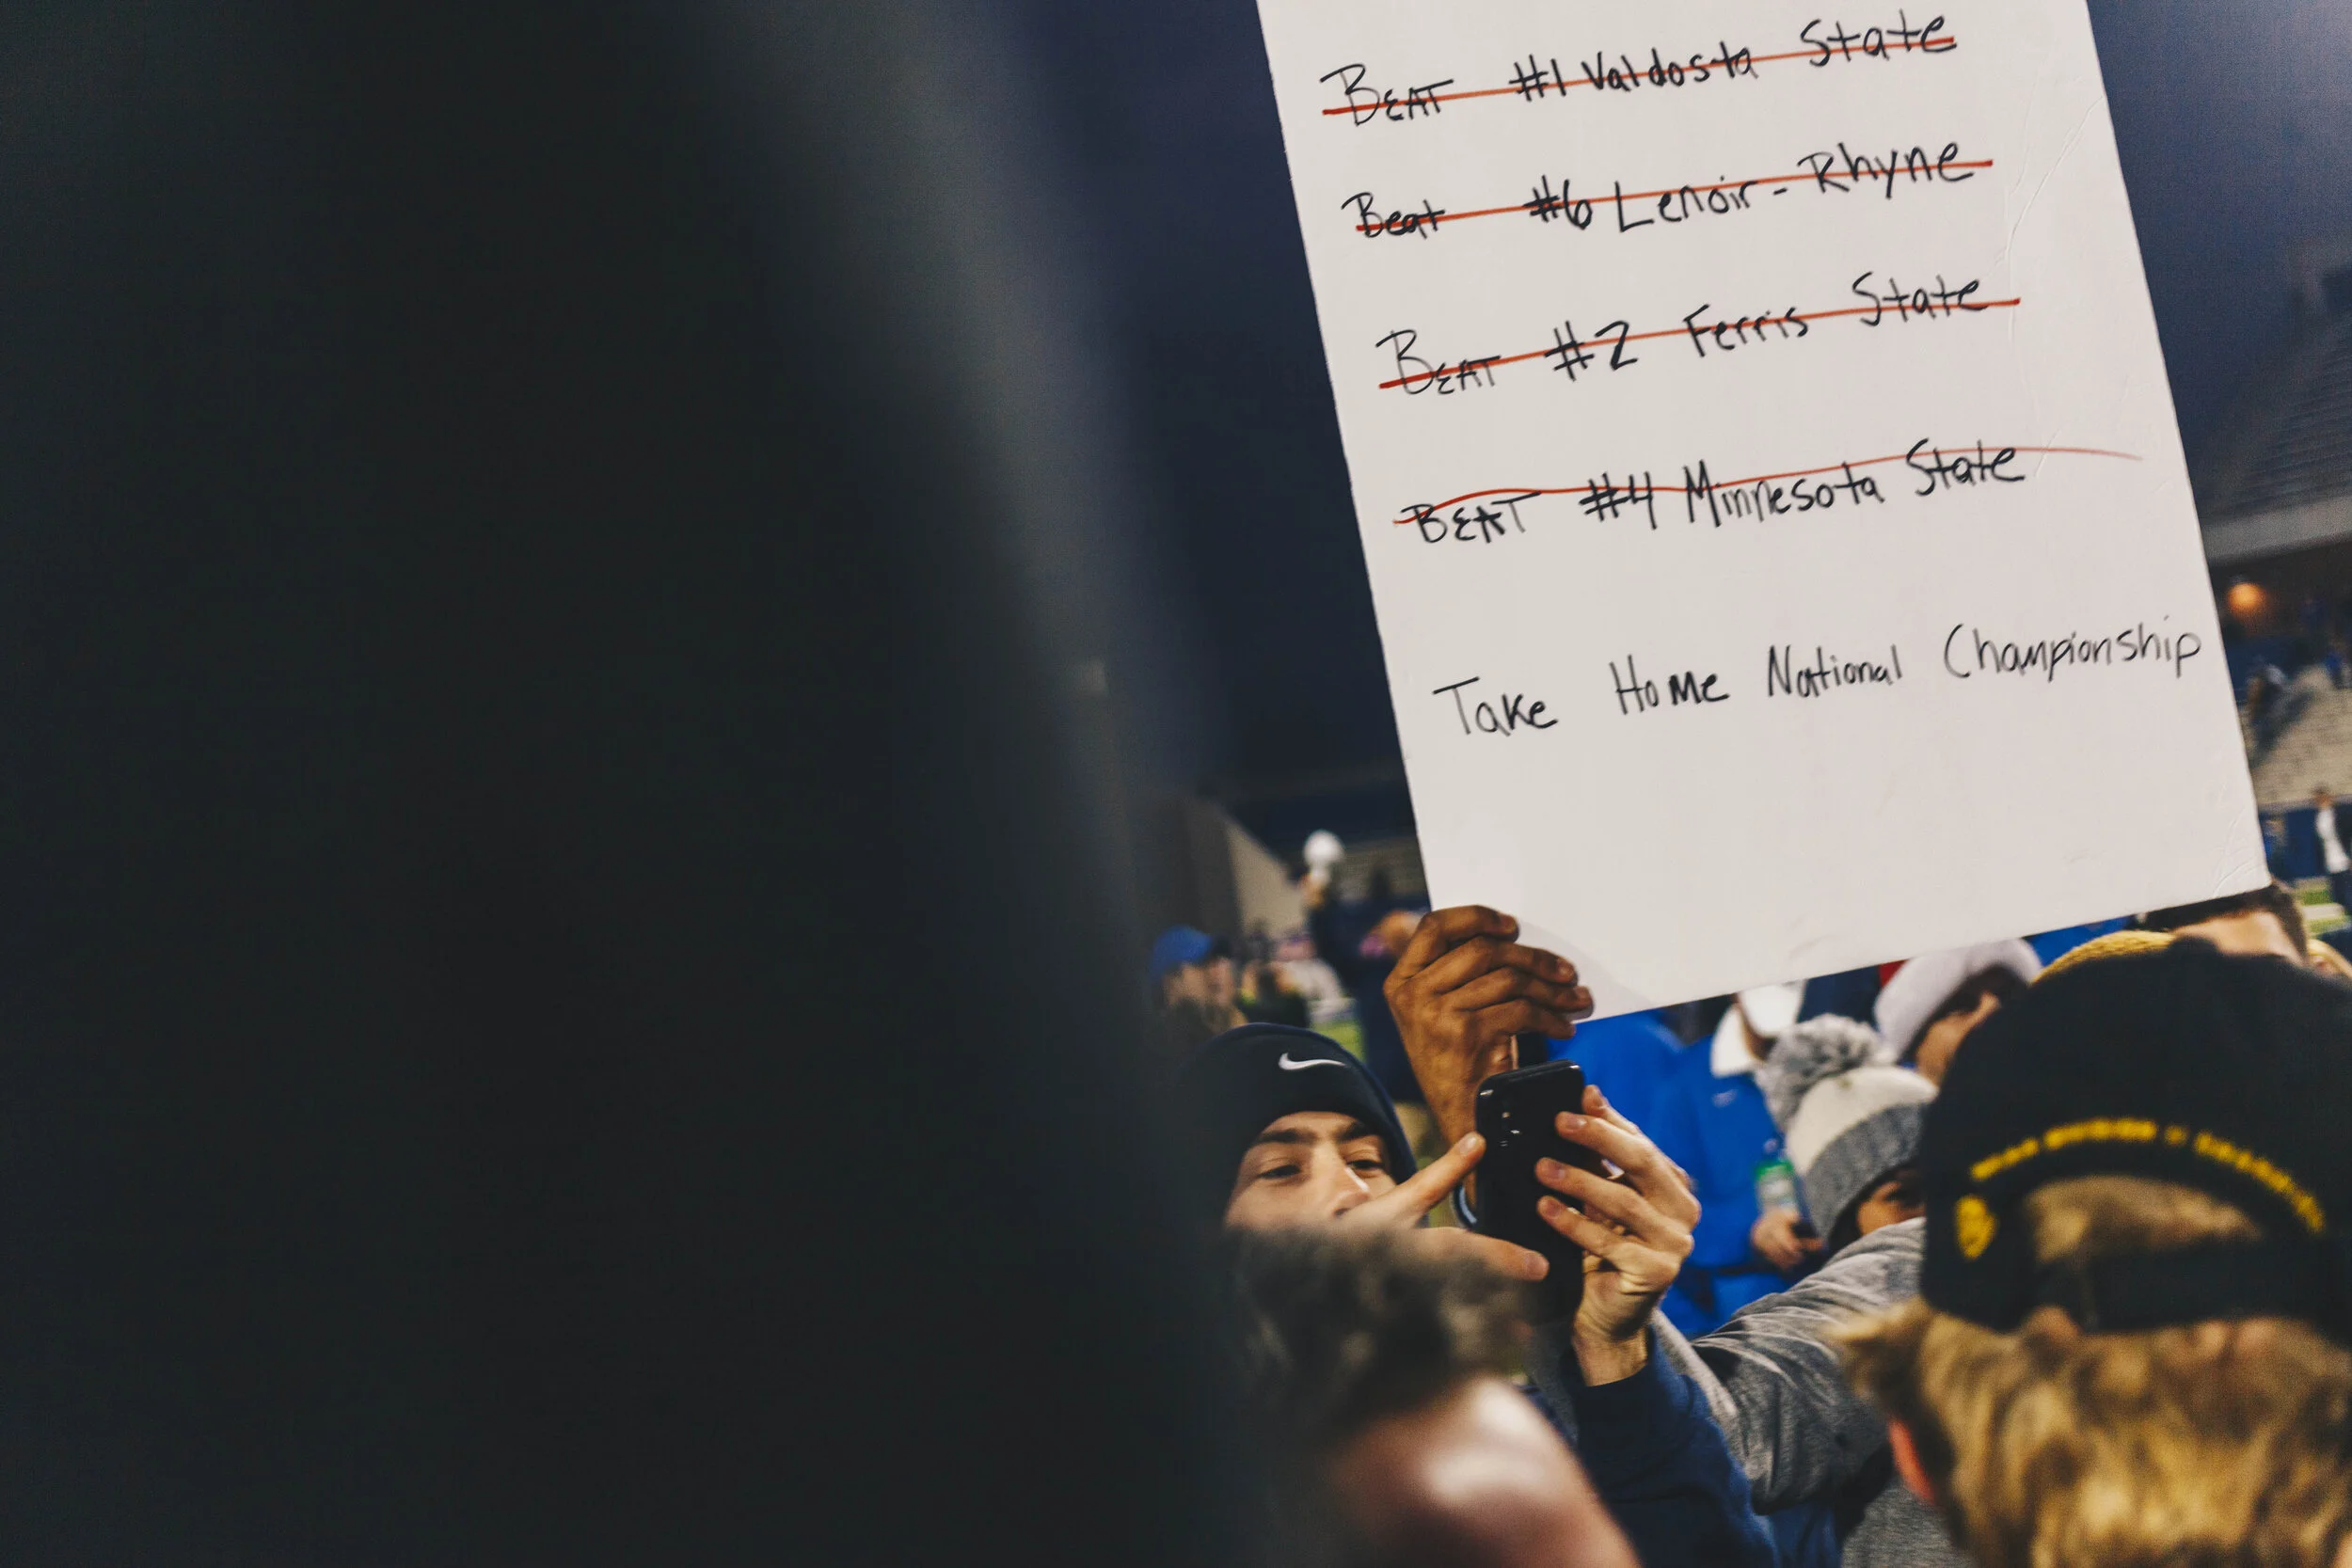 BEAT #1 Valdosta State
Beat #6 Lenoir-Rhyne
BEAT #2 Ferris State
BEAT #4 Minnesota State
Take Home National Championship